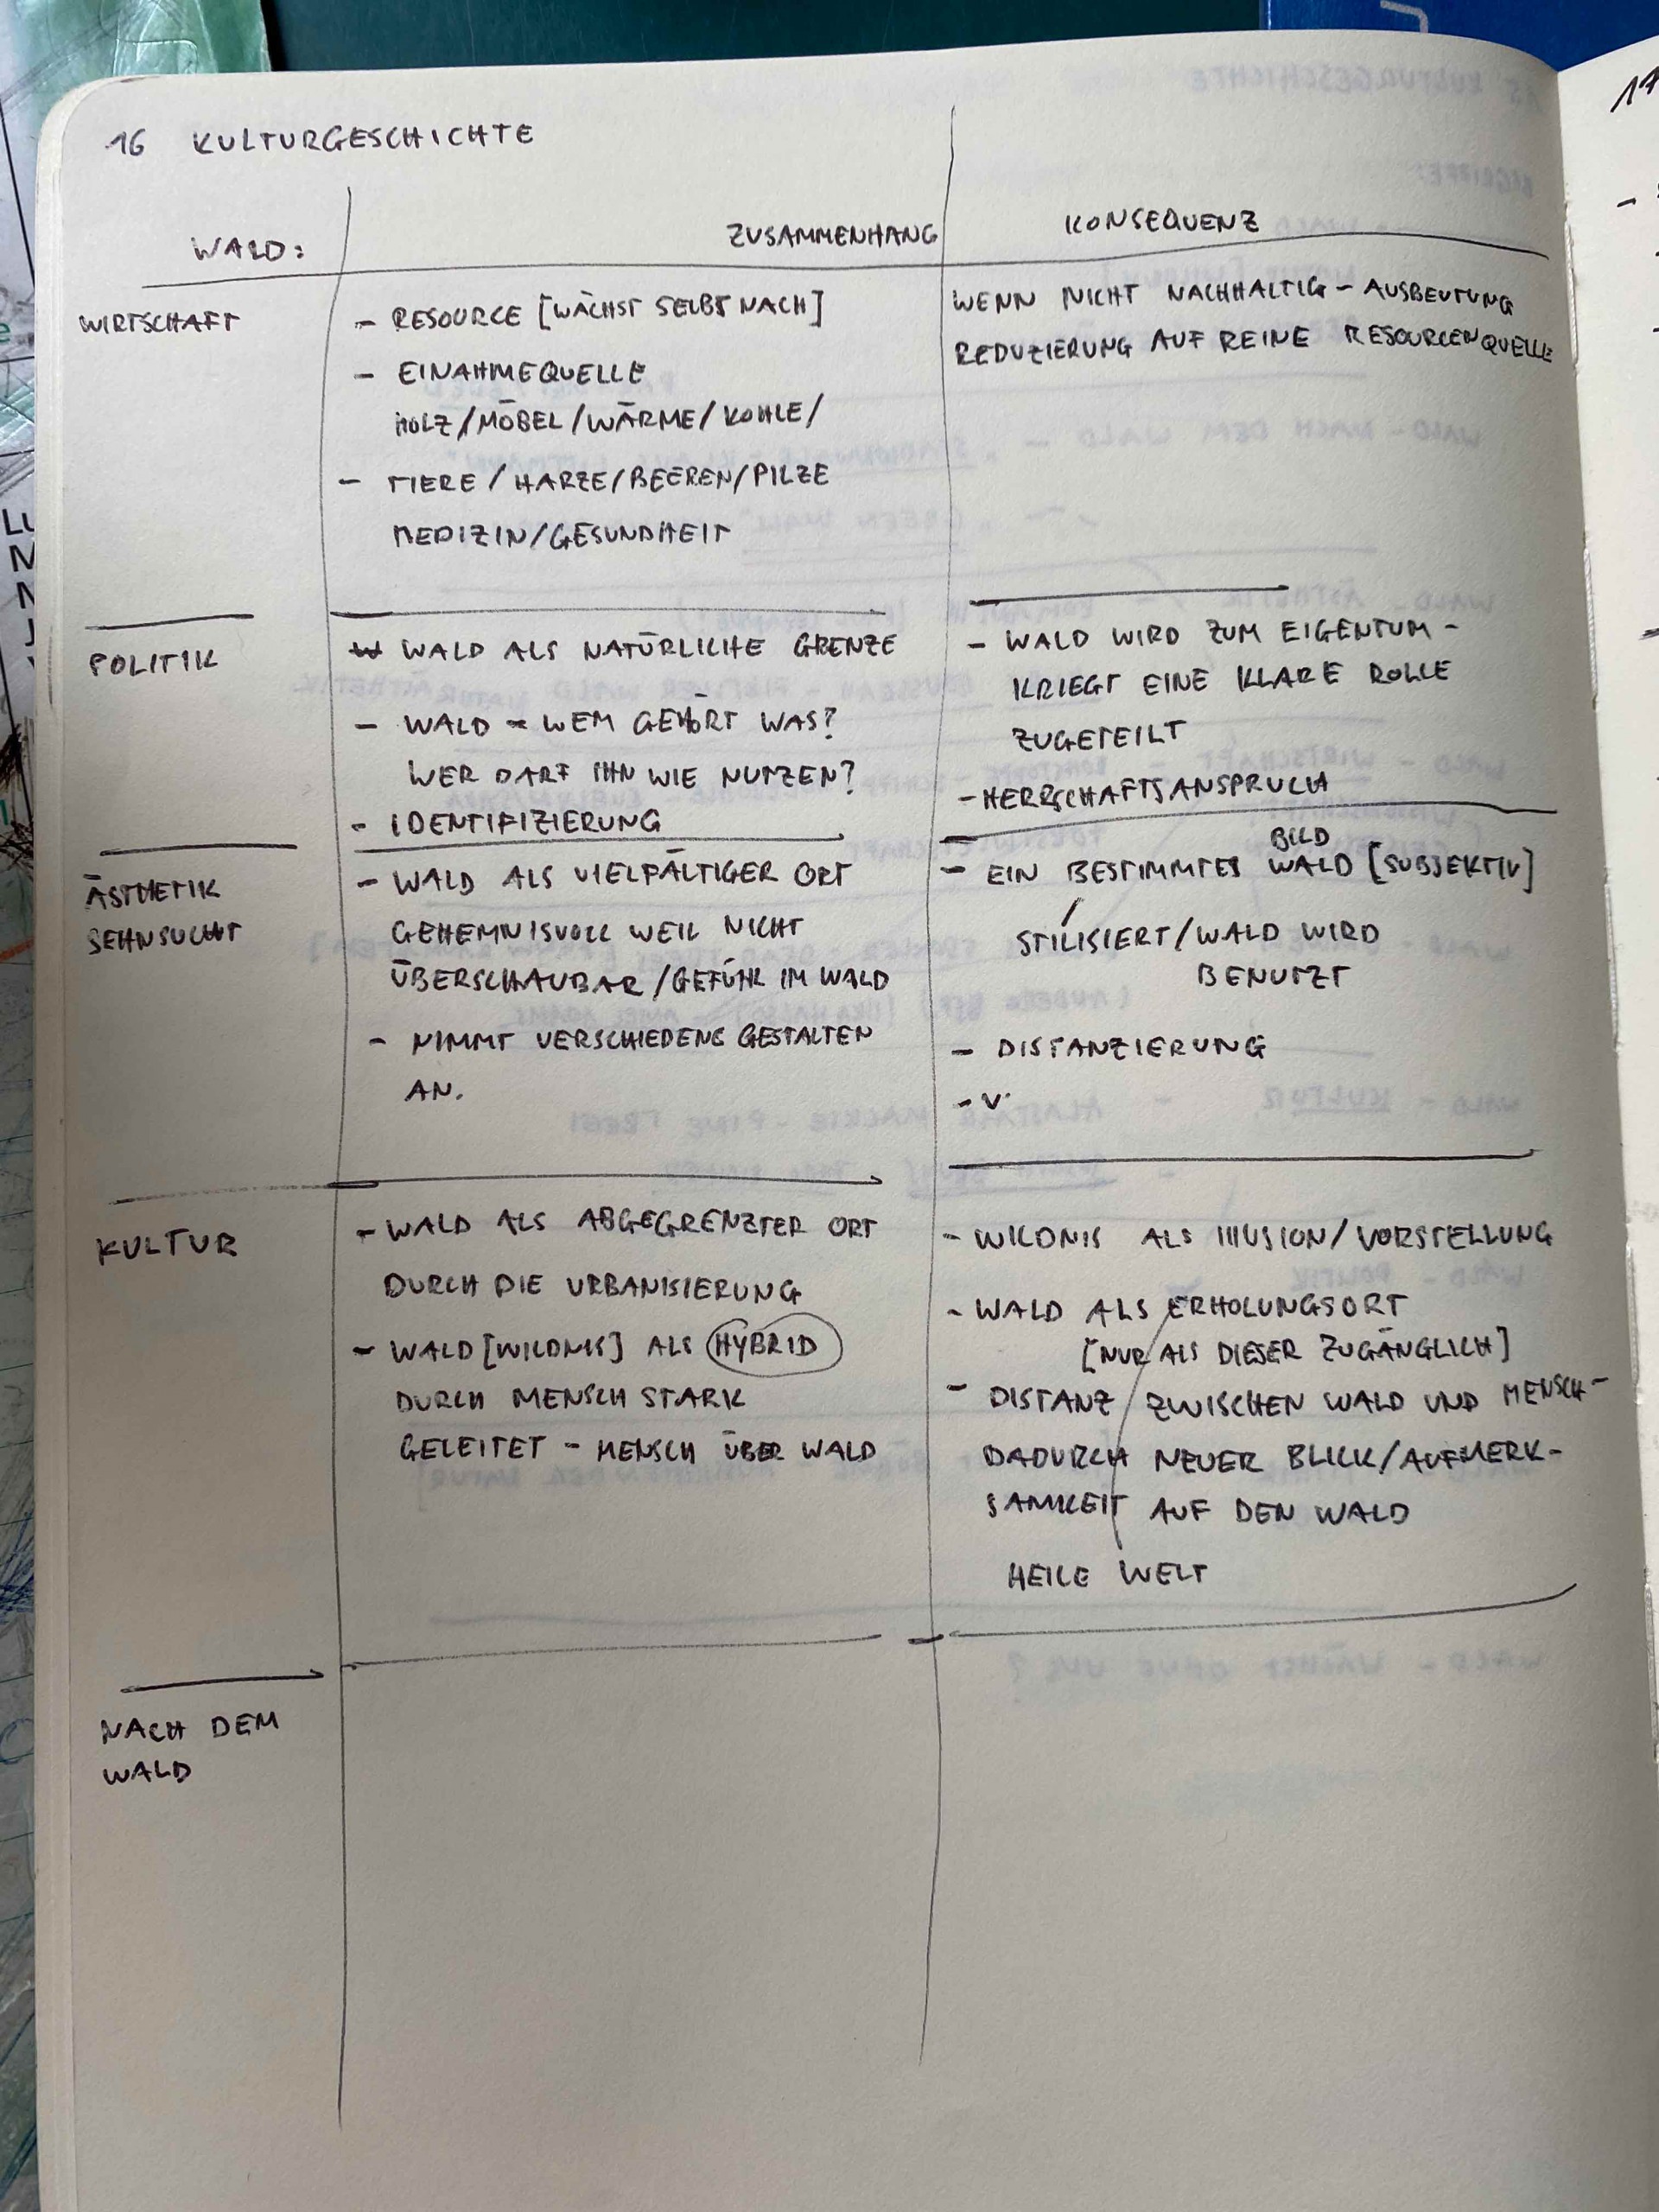 16 KULTURGESCHICHTE
WALD:
ZUSAMMENHANG
KONSEQUENZ
WIRTSCHAFT
- RESOURCE [WÄCHST SELBST NACH]
- EINAHMEQUELLE
HOLZ/MÖBEL/WÄRME/KOHLE/
- TIERE/HARZE/BEEREN/PILZE
MEDIZIN/GESUNDHEIT
WENN NICHT NACHHALTIG - AUSBEUTUNG
REDUZIERUNG AUF REINE RESOURCENQUELLE
POLITIK
WALD ALS NATÜRLICHE GRENZE
- WALD = WEM GEHÖRT WAS?
WER DARF IHN WIE NUTZEN?
- IDENTIFIZIERUNG
- WALD WIRD ZUM EIGENTUM -
KRIEGT EINE KLARE ROLLE
ZUGETEILT
- HERRSCHAFTSANSPRUCH
ÄSTHETIK
SEHNSUCHT
- WALD ALS VIELFÄLTIGER ORT
GEHEMNISVOLL WEIL NICHT
ÜBERSCHAUBAR/GEFÜHL IM WALD
- NIMMT VERSCHIEDENE GESTALTEN
AN.
BILD
- EIN BESTIMMTES WALD [SUBJEKTIV]
STILISIERT/WALD WIRD
BENUTZT
- DISTANZIERUNG
- V.
KULTUR
- WALD ALS ABGEGRENZTER ORT
DURCH DIE URBANISIERUNG
- WALD [WILDNIS] ALS HYBRID
DURCH MENSCH STARK
GELEITET - MENSCH ÜBER WALD
- WILDNIS ALS ILLUSION/VORSTELLUNG
- WALD ALS ERHOLUNGSORT
[NUR ALS DIESER ZUGÄNGLICH]
- DISTANZ ZWISCHEN WALD UND MENSCH -
DADURCH NEUER BLICK/AUFMERK-
SAMKEIT AUF DEN WALD
HEILE WELT
NACH DEM
WALD